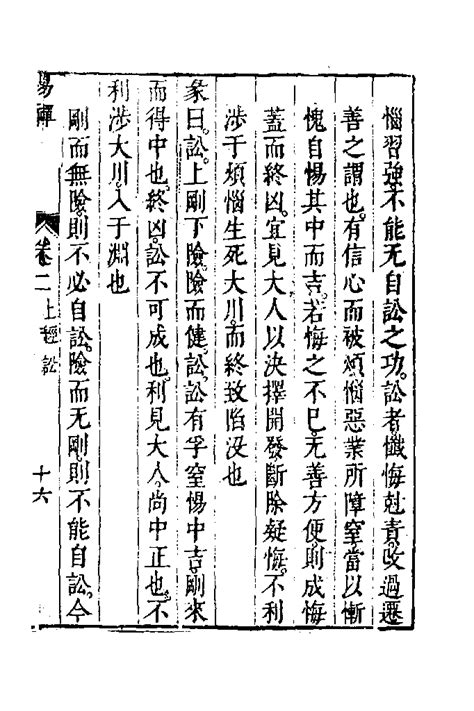 惱習強。不能无自訟之功。訟者懺悔尅責。改過遷
善之謂也。有信心而被煩惱惡業所障窒。當以慚
愧自惕其中而吉。若悔之不已。无善方便。則成悔
蓋而終凶。宜見大人以決擇開發。斷除疑悔。不利
涉于煩惱生死大川。而終致陷没也
彖曰。訟。上剛下險。險而健。訟。訟有孚窒惕中吉。剛來
而得中也。終凶。訟不可成也。利見大人。尚中正也。不
利涉大川。入于淵也
剛而無險。則不必自訟。險而无剛。則不能自訟。今
易禪 卷二 上經 訟 十六